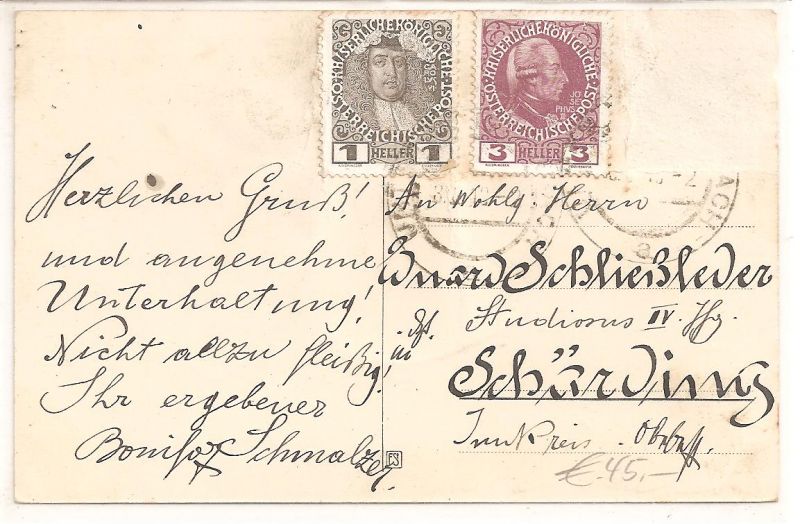 KAISERLICHE KÖNIGLICHE
ÖSTERREICHISCHE POST
1 HELLER 1
KAISERLICHE KÖNIGLICHE
JOSEPHUS
ÖSTERREICHISCHE POST
3 HELLER 3
Herzlichen Gruß!
und angenehme
Unterhaltung!
Nicht allzu fleißig!
Ihr ergebener
Bonifaz Schmalzer.
An Wohlg Herrn
Eduard Schließleder
Studiosus IV.
in
Schärding
Innkreis
€.45.-